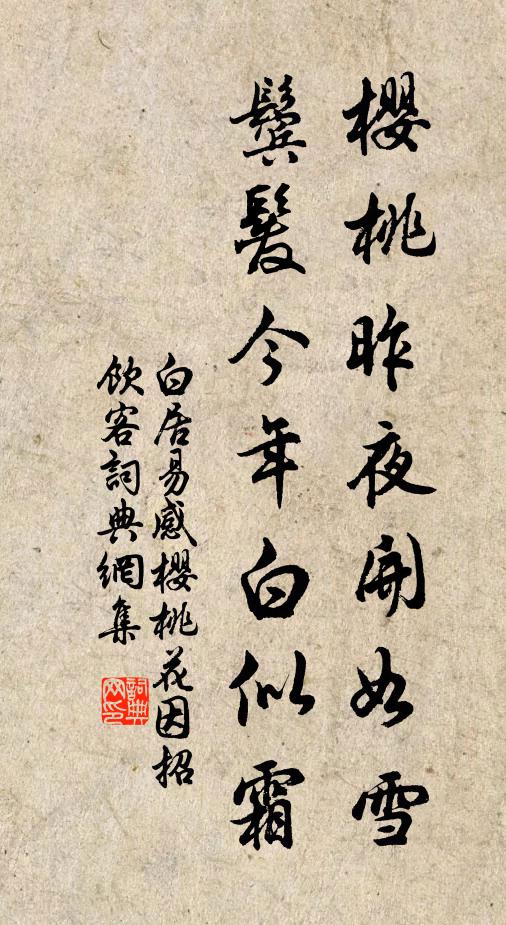 櫻桃昨夜開如雪
鬢髮今年白似霜
白居易感櫻桃花因招
飲客詞典網集
詞典網印